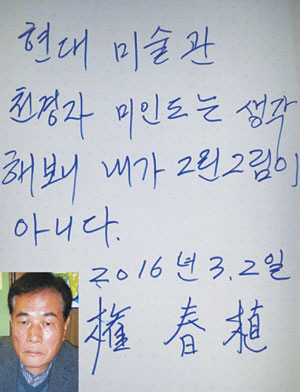 현대 미술관
천경자 미인도는 생각
해보니 내가 그린그림이
아니다.
2016년 3.2일
權春植